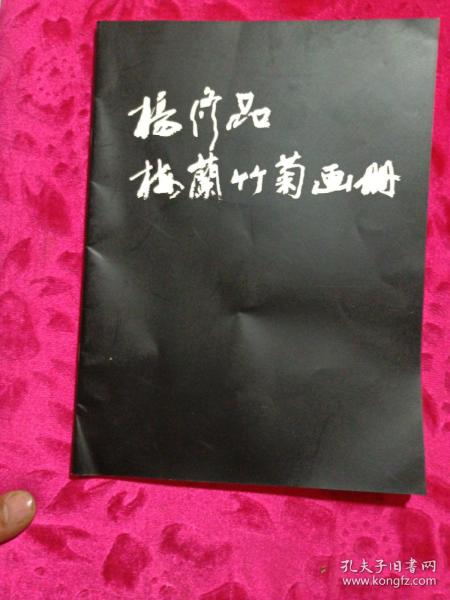 楊修品
梅蘭竹菊画册
孔夫子旧书网
www.kongfz.com